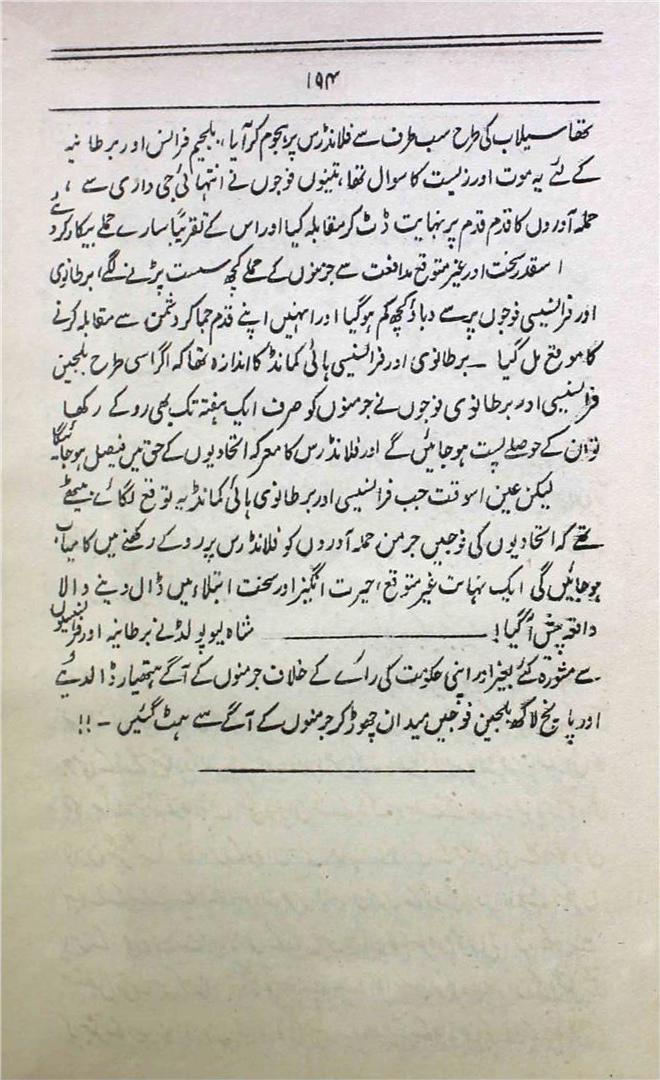 ۱۹۴
تھا سیلاب کی طرح سب طرف سے فلانڈرس پر ہجوم کر آیا، بلجیم فرانس اور برطانیہ
کے لئے یہ موت اور زیست کا سوال تھا، تینوں فوجوں نے انتہائی جی داری سے ،
حملہ آوروں کا قدم قدم پر نہایت ڈٹ کر مقابلہ کیا اور اس کے تقریباً سارے حملے بیکار کردئے
اسقدر سخت اور غیر متوقع مدافعت سے جرمنوں کے حملے کچھ سست پڑنے لگے، برطانوی
اور فرانسیسی فوجوں پر سے دباؤ کچھ کم ہوگیا اور انہیں اپنے قدم جما کر دشمن سے مقابلہ کرنے
کا موقع مل گیا ۔ برطانوی اور فرانسیسی ہائی کمانڈ کا اندازہ تھا کہ اگر اسی طرح بلجین
فرانسیسی اور برطانوی فوجوں نے جرمنوں کو صرف ایک ہفتہ تک بھی روکے رکھا
تو ان کے حوصلے پست ہوجائیں گے اور فلانڈرس کا معرکہ اتحادیوں کے حق میں فیصل ہوجائیگا۔
لیکن عین اسوقت جب فرانسیسی اور برطانوی ہائی کمانڈ یہ توقع لگائے بیٹھے
تھے کہ اتحادیوں کی فوجیں جرمن حملہ آوروں کو فلانڈرس پر روکے رکھنے میں کامیاب
ہوجائیں گی ایک نہایت غیر متوقع، حیرت انگیز اور سخت ابتلاء میں ڈال دینے والا
واقعہ پیش آگیا! ——— شاہ لیوپولڈ نے برطانیہ اور فرانسیسیوں
سے مشورہ کئے بغیر اور اپنی حکومت کی رائے کے خلاف جرمنوں کے آگے ہتھیار ڈالدئیے
اور پانچ لاکھ بلجین فوجیں میدان چھوڑ کر جرمنوں کے آگے سے ہٹ گئیں ۔ !!